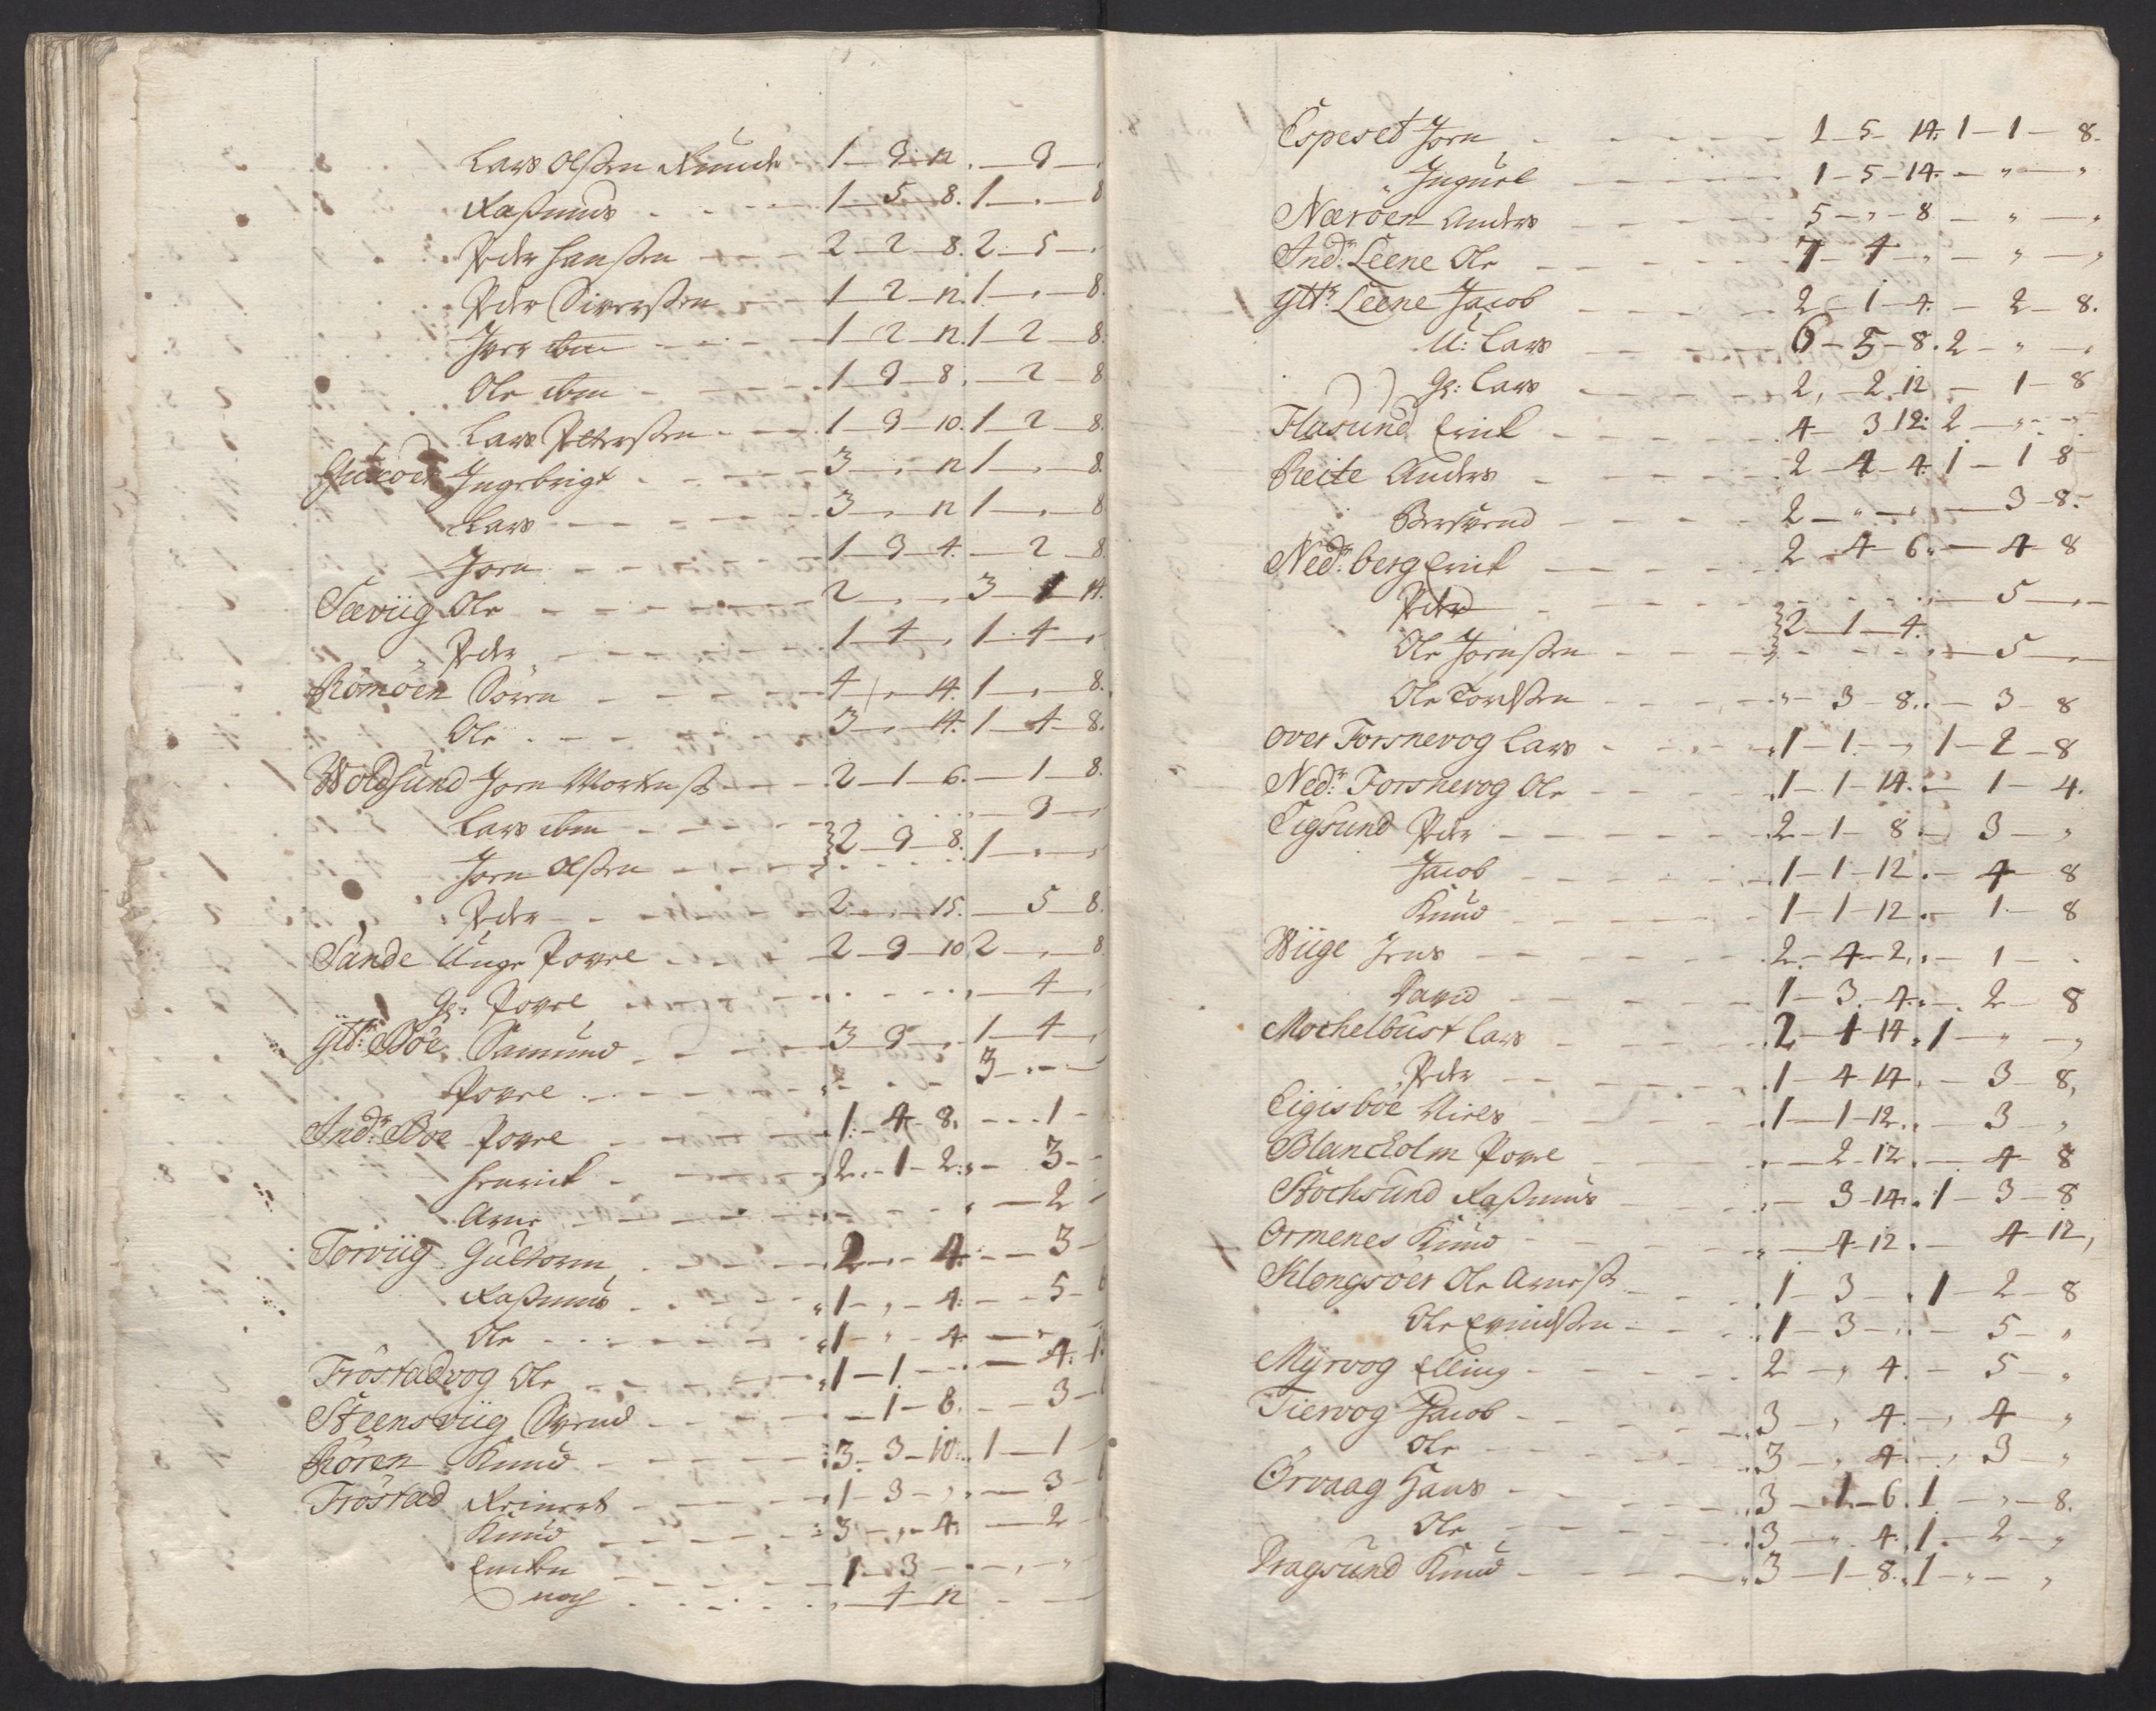 Lars Olssen Runde 1 – 3 – 12 . – 3 –
Rasmus 1 – 5 – 8. 1 – „ – 8
Peder Hanssen 2 – 2 – 8. 2 – 5 – „
Peder Siverssen 1 – 2 – 12. 1 – „ – 8.
Iver ibm 1 – 2 – 12. 1 – 2 – 8.
Ole ibm 1 – 3 – 8. – 2 – 8
Lars Peterssen 1 – 3 – 10. 1 – 2 – 8.
Ingebrigt 3 – „ – 12 1 – „ – 8.
Lars 3 – „ – 12 1 – „ – 8
Jorn 1 – 3 – 4. – 2 – 8
Sæviig Ole 2 – „ – „ 3 – 1 – 14.
„ Peder 1 – 4 – „ 1 – 4 – „
Römöen Sören 4 – „ – 14. 1 – „ – 8.
Ole 3 – „ – 14. 1 – 4 – 8.
Woldsund Jorn Mortenss 2 – 1 – 6. – 1 – 8.
Lars ibm – 3 –
Jorn Olssen } 2 – 3 – 8. 1 – „ – „
Peder 2 – „ – 15. – 5 – 8.
Sande Unge Povel 2 – 3 – 10 2 – „ – 8
Gl: Povel – 4 –
Ytt.r Böe Samund 3 – 3 – „ 1 – 4 –
Povel 3 – „ –
Ind.r Böe Povel 1 – 4 – 8. – 1 –
Henrick 2 – 1 – 2. – 3 –
Arne – 2 –
Torviig Guttorm 2 – „ – 4. – 3 –
Rasmus 1 – „ – 4. – 5 –
Ole 1 – „ – 4.
Tröstadvog Ole 1 – 1 – – 4 –
Steensviig Svend – 1 – 8. – 3 –
Rören Knud 3 – 3 – 10. 1 – 1
Tröstad Reinert 1 – 3 – „ – 3 –
Knud 3 – „ – 4. – 2
Encken 1 – 3 – „ – „
noch „ – 4 – 12
Espeset Jorn 1 – 5 – 14. 1 – 1 – 8.
„ Inguel 1 – 5 – 14. – „ – „
Næröen Anders 5 – „ – 8 – „ – „
Ind.r Leene Ole 7 – 4 – „ – „ – „
Ytt.r Leene Jacob 2 – 1 – 4. – 2 – 8.
U: Lars 6 – 5 – 8. 2 – „ – „
Gl: Lars 2, – 2. 12 – 1 – 8
Flasund Erick 4 – 3 12: 2 – „ – „
Reite Anders 2 – 4 – 4. 1 – 1 8
Bersvend 2 – „ – „ – 3 – 8.
Ned.r berg Erick 2 – 4 – 6. – 4 – 8
Peder – 5 – „
Ole Jornssen } 2 – 1 – 4. – 5 – „
Ole Tordssen „ – 3 – 8. – 3 – 8
over Forsnevog Lars 1 – 1 – „ 1 – 2 – 8
Ned.r Forsnevog Ole 1 – 1 – 14. – 1 – 4.
Eigsund Peder 2 – 1 – 8. – 3 – „
Jacob 1 – 1 – 12. – 4 – 8
Knud 1 – 1 – 12. – 1 – 8
Wiige Jens 2 – 4 – 2. – 1 – „
David 1 – 3 – 4. – 2 – 8
Mochelbust Lars 2 – 4 – 14. 1 – „ – „
Peder 1 – 4 – 14. – 3 – 8,
Eigisböe Niels 1 – 1 – 12. – 3 – „
Blanckolm Povel – 2 – 12. – 4 – 8
Stochsund Rasmus – 3 – 14. 1 – 3 – 8
Ormenes Knud – 4 – 12. – 4 – 12,
Klongsöer Ole Arness 1 – 3 – . 1 – 2 – 8
Ole Evindssen 1 – 3 – . – 5 – „
Myrvog Elling 2 – „ – 4. – 5 – „
Tiervog Jacob 3 – „ 4. – 4 „
Ole 3 – „ 4. – 3 „
Ørvaag Hans 3 – 1 – 6. 1 – „ – 8.
Ole 3 – „ 4. 1 – 2 – „
Dragsund Knud 3 – 1 – 8. 1 – „ – „